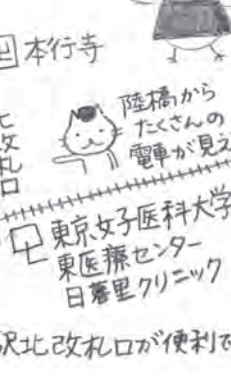 本行寺
北改札口
陸橋から
たくさんの
電車が見え
東京女子医科大学
東医療センター
日暮里クリニック
駅北改札口が便利で